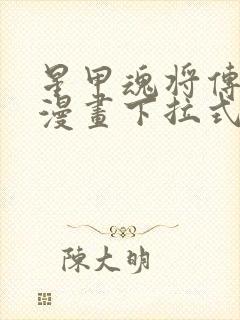 星甲魂将傳
漫畫下拉式
陳大明